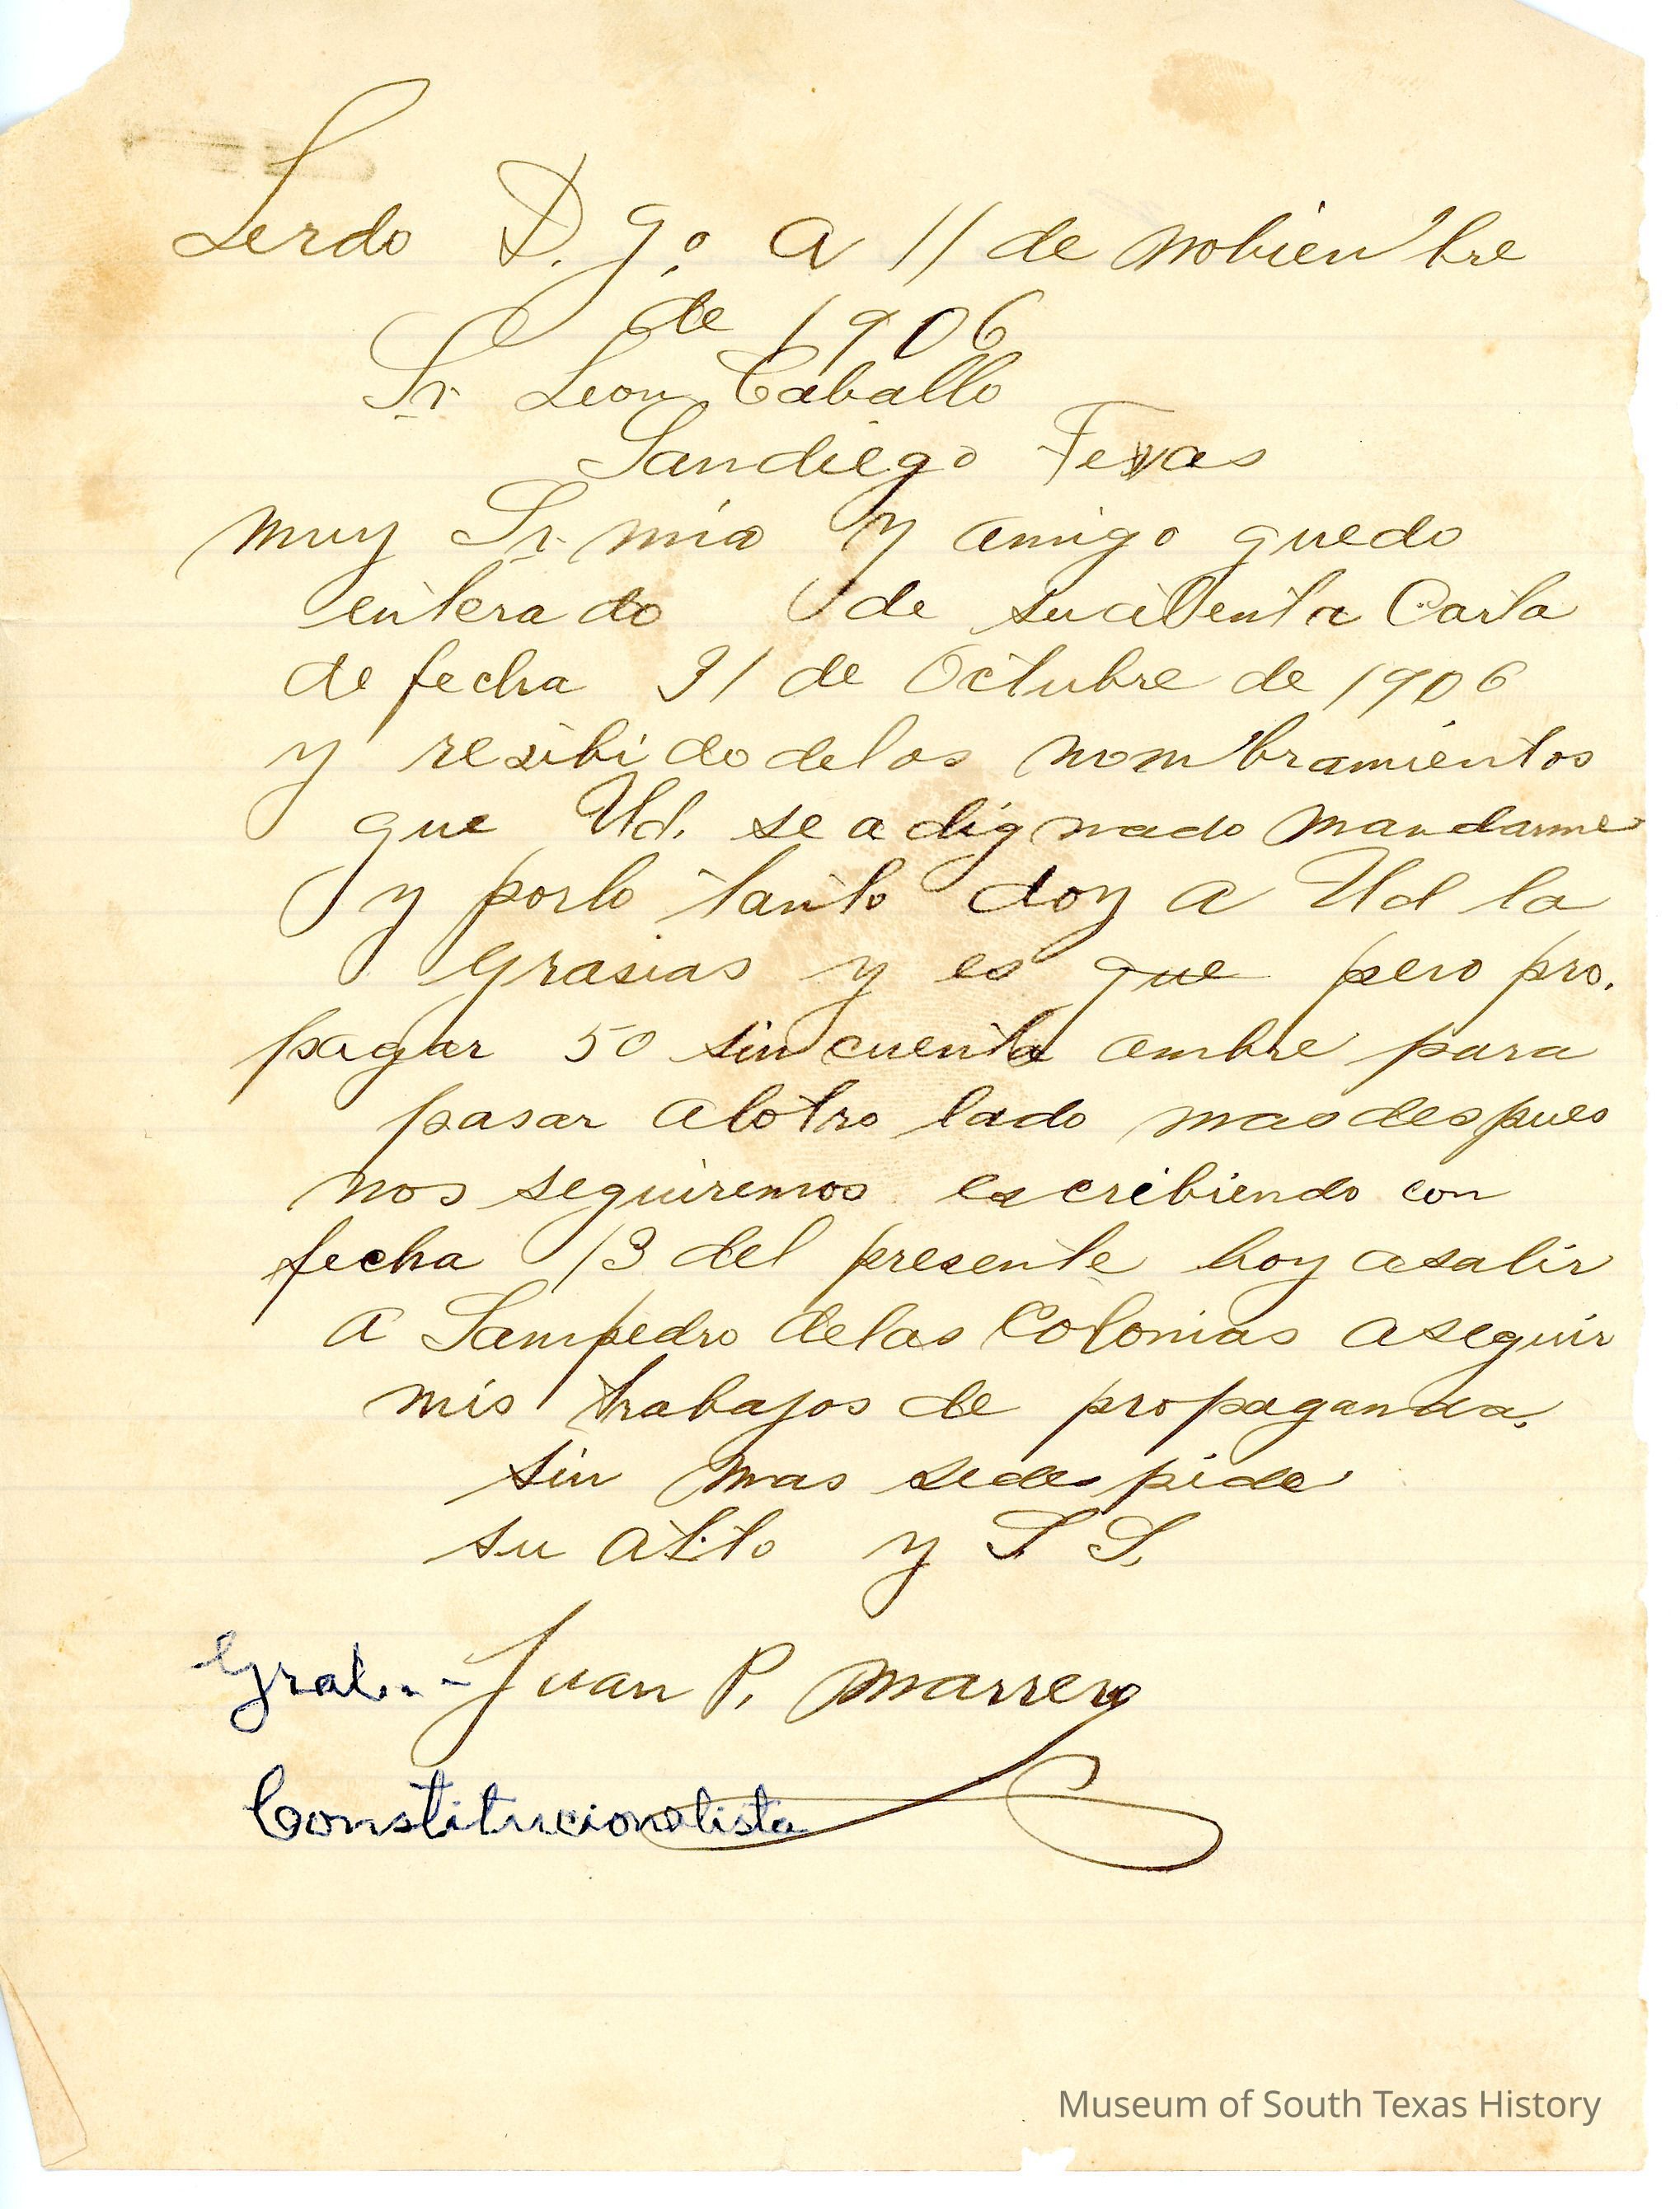 Lerdo D. g.o a 11 de nobien'bre
de 1906
Sr. Leon Caballo
Sandiego Texas
muy Sr. mio y amigo quedo
enterado de su atenta Carta
de fecha 31 de Octubre de 1906
y resibido delos nom'bramientos
que Ud. se a dignado mandarme
y porlo tanto doy a Ud la
grasias y es que pero pro.
pagar 50 sincuenta ombre para
pasar alotro lado mas despues
nos seguiremos escribiendo con
fecha 13 del presente hoy asalir
a Sampedro delas Colonias aseguir
mis trabajos de propaganda.
sin mas sedespide
su atto y S S.
Gral.-- Juan P. Marrero
Constitucionalista
Museum of South Texas History